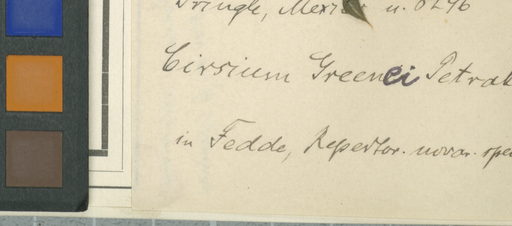 Pringle, Mexi n. 6296
Cirsium Greenei Petrak
in Fedde, Repertor. novar. spec